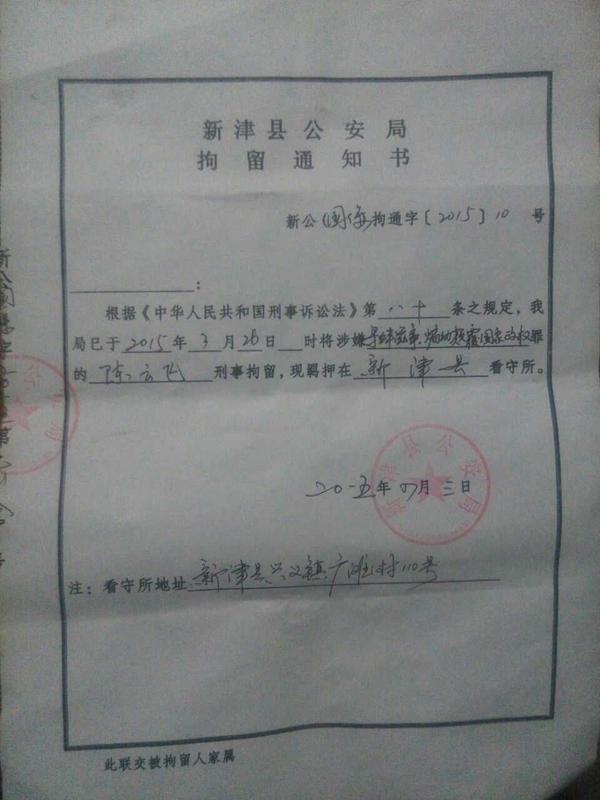 新津县公安局
拘留通知书
新公(国保)拘通字〔2015〕10 号
：
根据《中华人民共和国刑事诉讼法》第 八十 条之规定，我
局已于 2015 年 3 月 26 日 时将涉嫌寻衅滋事、煽动颠覆国家政权罪
的 陈云飞 刑事拘留，现羁押在 新津县 看守所。
二〇一五年四月三日
新津县公安局
注：看守所地址 新津县兴义镇广滩村110号
此联交被拘留人家属